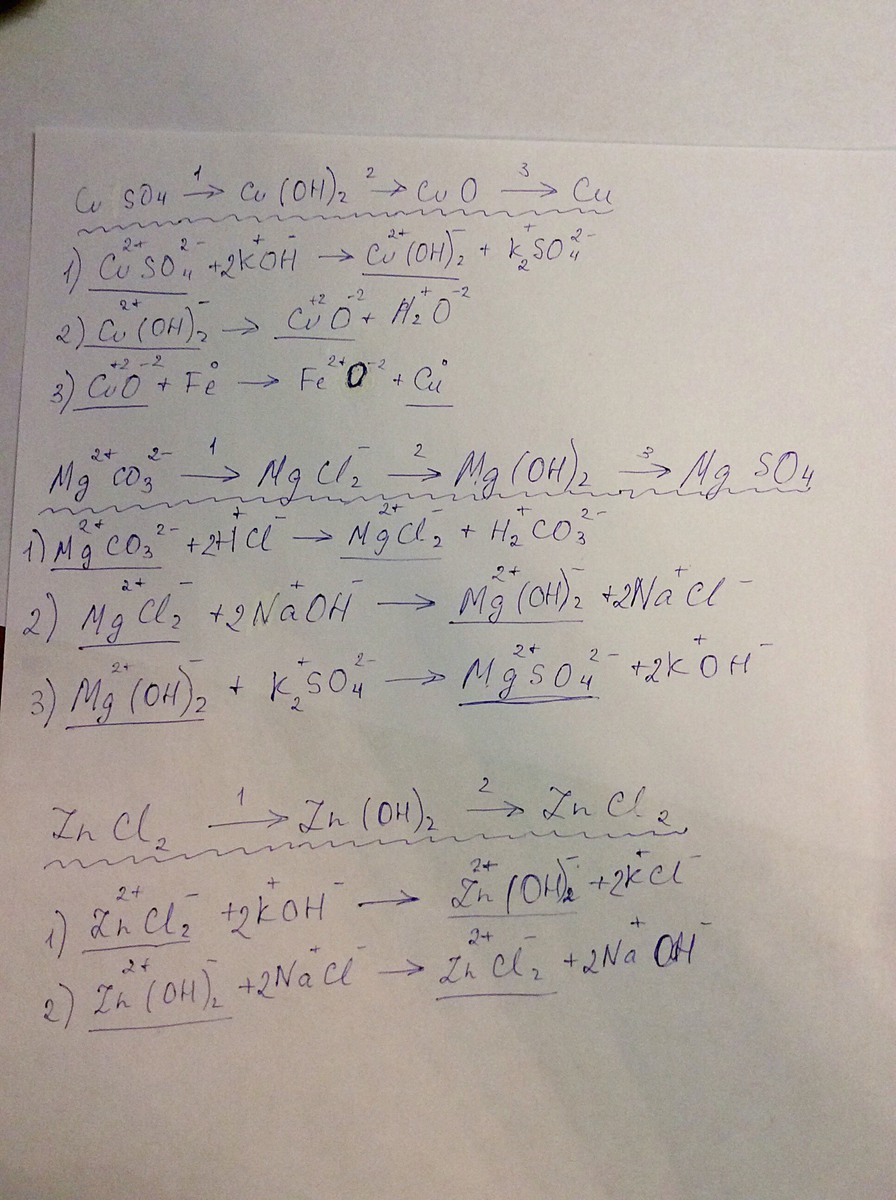 CuSO₄ →¹ Cu(OH)₂ →² CuO →³ Cu
1) Cu²⁺SO₄²⁻ + 2K⁺OH⁻ → Cu²⁺(OH)₂⁻ + K₂⁺SO₄²⁻
2) Cu²⁺(OH)₂⁻ → Cu⁺²O⁻² + H₂⁺O⁻²
3) Cu⁺²O⁻² + Fe⁰ → Fe²⁺O⁻² + Cu⁰
Mg²⁺CO₃²⁻ →¹ MgCl₂⁻ →² Mg(OH)₂ →³ MgSO₄
1) Mg²⁺CO₃²⁻ + 2H⁺Cl⁻ → Mg²⁺Cl₂⁻ + H₂⁺CO₃²⁻
2) Mg²⁺Cl₂⁻ + 2Na⁺OH⁻ → Mg²⁺(OH)₂⁻ + 2Na⁺Cl⁻
3) Mg²⁺(OH)₂⁻ + K₂⁺SO₄²⁻ → Mg²⁺SO₄²⁻ + 2K⁺OH⁻
ZnCl₂ →¹ Zn(OH)₂ →² ZnCl₂
1) Zn²⁺Cl₂⁻ + 2K⁺OH⁻ → Zn²⁺(OH)₂⁻ + 2K⁺Cl⁻
2) Zn²⁺(OH)₂⁻ + 2Na⁺Cl⁻ → Zn²⁺Cl₂⁻ + 2Na⁺OH⁻